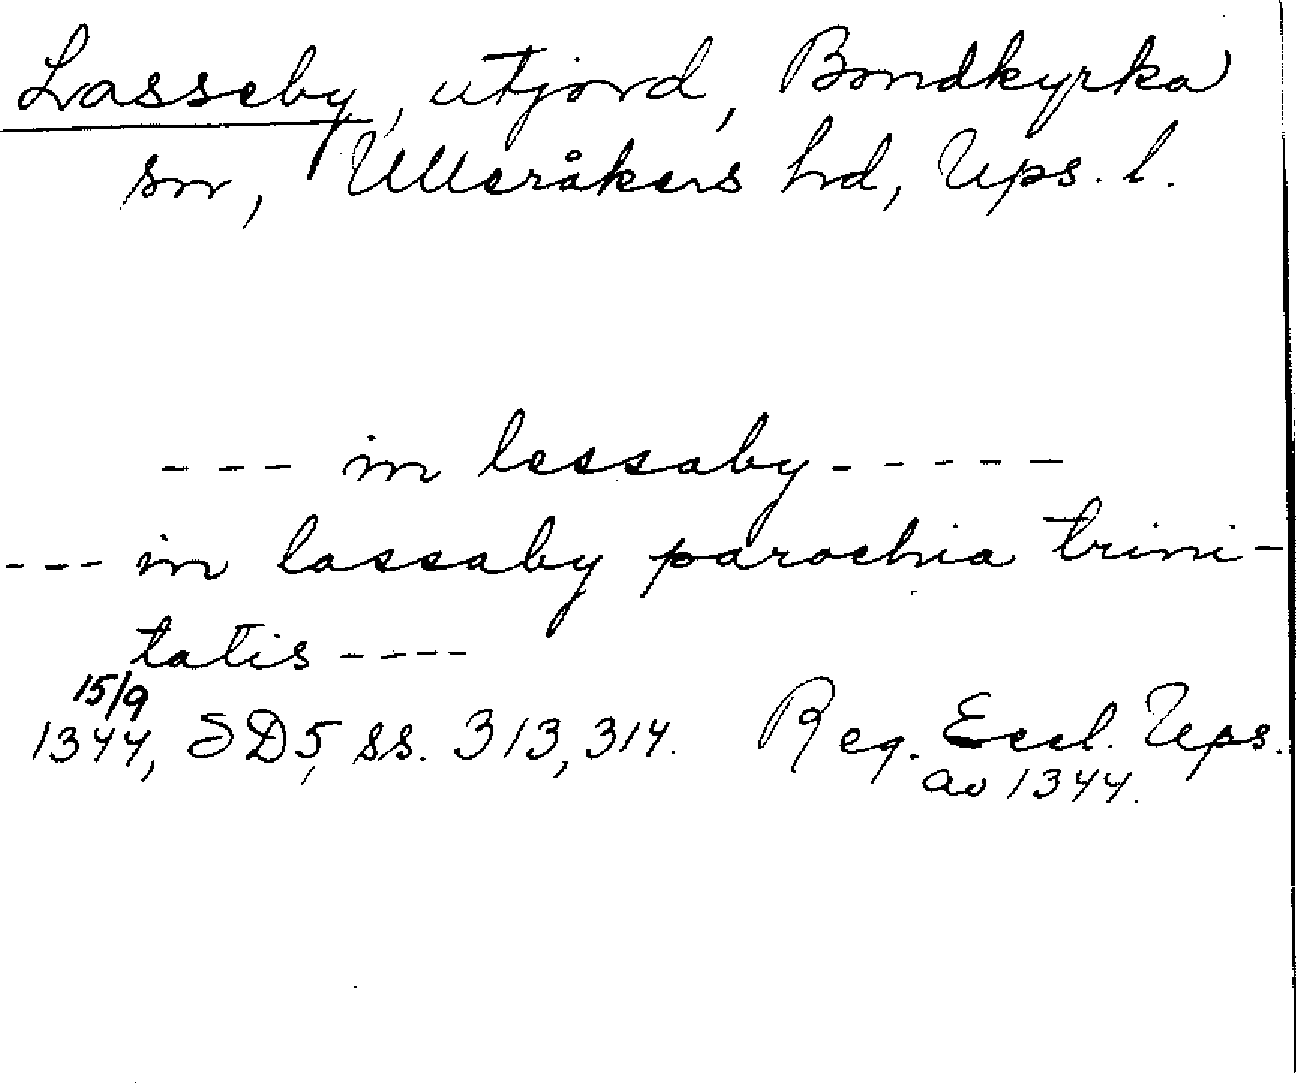 Lasseby, utjord, Bondkyrka
sn, Ulleråkers hd, Ups. l.
--- in lessaby-----
--- in lassaby parochia trini-
tatis ----
15/9
1344, SD5, ss. 313, 314. Reg. Eccl. Ups.
av 1344.